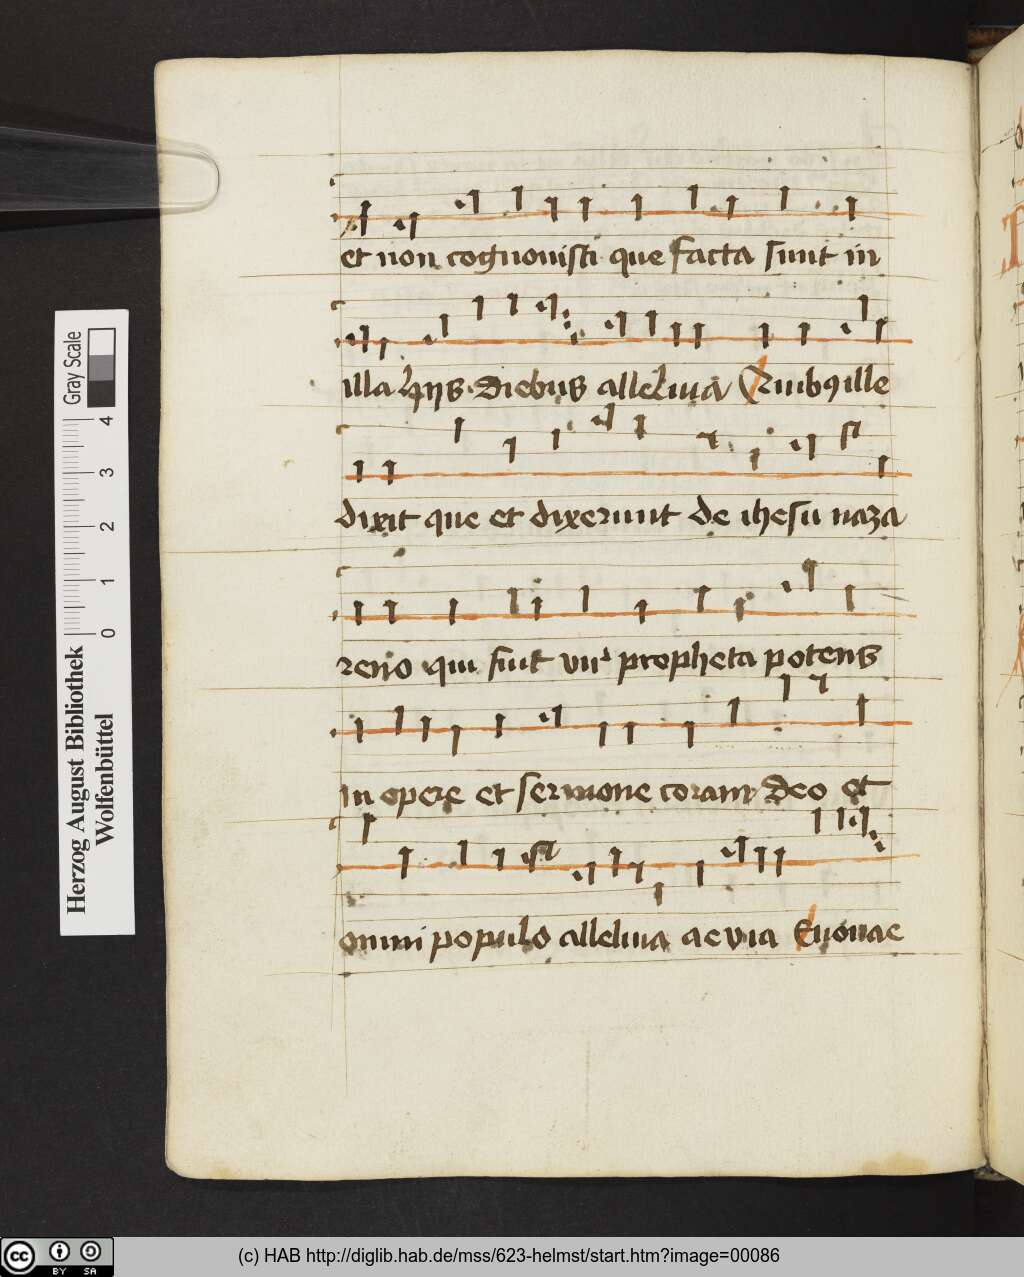 et non cognouisti que facta sunt in
illa hijs diebus alleluia Quibꝯ ille
dixit que et dixerunt de ihesu naza
reno qui fuit vir propheta potens
in opere et sermone coram deo et
omni populo alleluia aevia Euouae
Herzog August Bibliothek
Wolfenbüttel
0 1 2 3 4
Gray Scale
cc BY SA
(c) HAB http://diglib.hab.de/mss/623-helmst/start.htm?image=00086